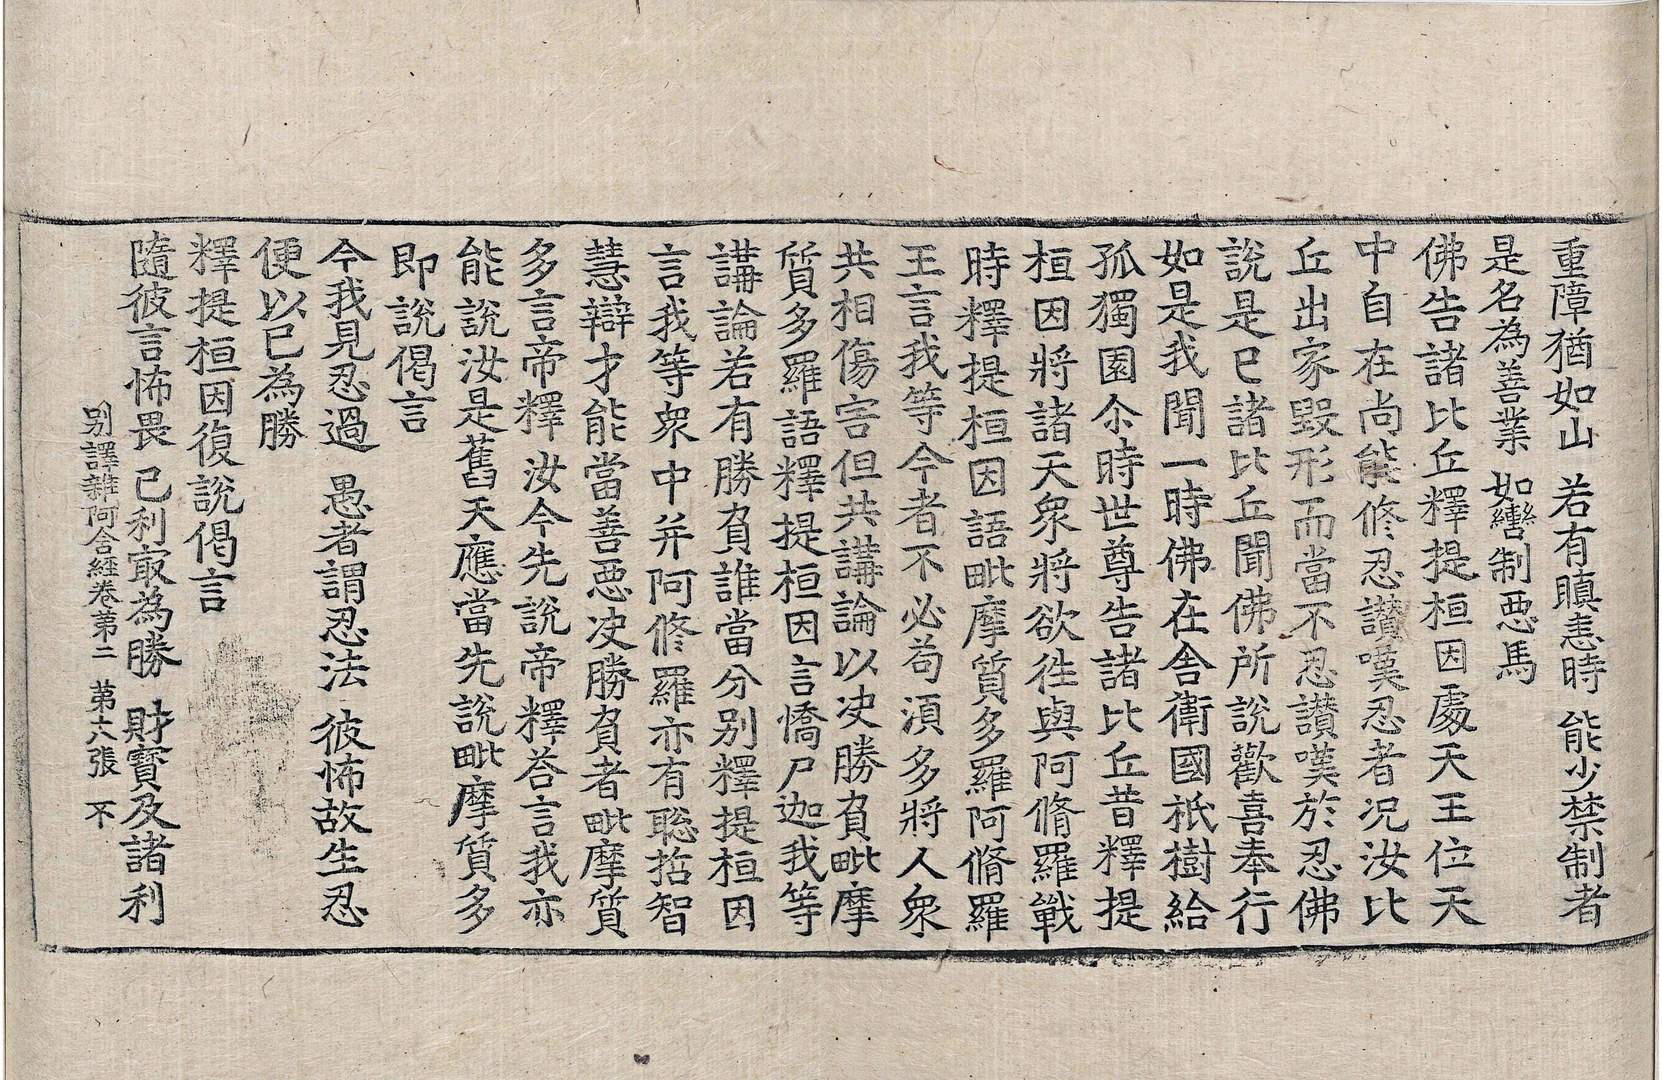 重障猶如山　若有瞋恚時　能少禁制者
是名為善業　如轡制惡馬
佛告諸比丘釋提桓因處天王位天
中自在尚能修忍讚嘆忍者况汝比
丘出家毀形而當不忍讚嘆於忍佛
說是已諸比丘聞佛所說歡喜奉行
如是我聞一時佛在舍衛國祇樹給
孤獨園尒時世尊告諸比丘昔釋提
桓因將諸天衆將欲徃與阿脩羅戰
時釋提桓因語毗摩質多羅阿脩羅
王言我等今者不必苟湏多將人衆
共相傷害但共講論以决勝負毗摩
質多羅語釋提桓因言憍尸迦我等
講論若有勝負誰當分别釋提桓因
言我等衆中并阿修羅亦有聡哲智
慧辯才能當善惡决勝負者毗摩質
多言帝釋汝今先說帝釋荅言我亦
能說汝是舊天應當先說毗摩質多
即說偈言
今我見忍過　愚者謂忍法　彼怖故生忍
便以已為勝
釋提桓因復說偈言
隨彼言怖畏　已利㝡為勝　財寳及諸利
别譯雜阿含經卷第二　第六張　不